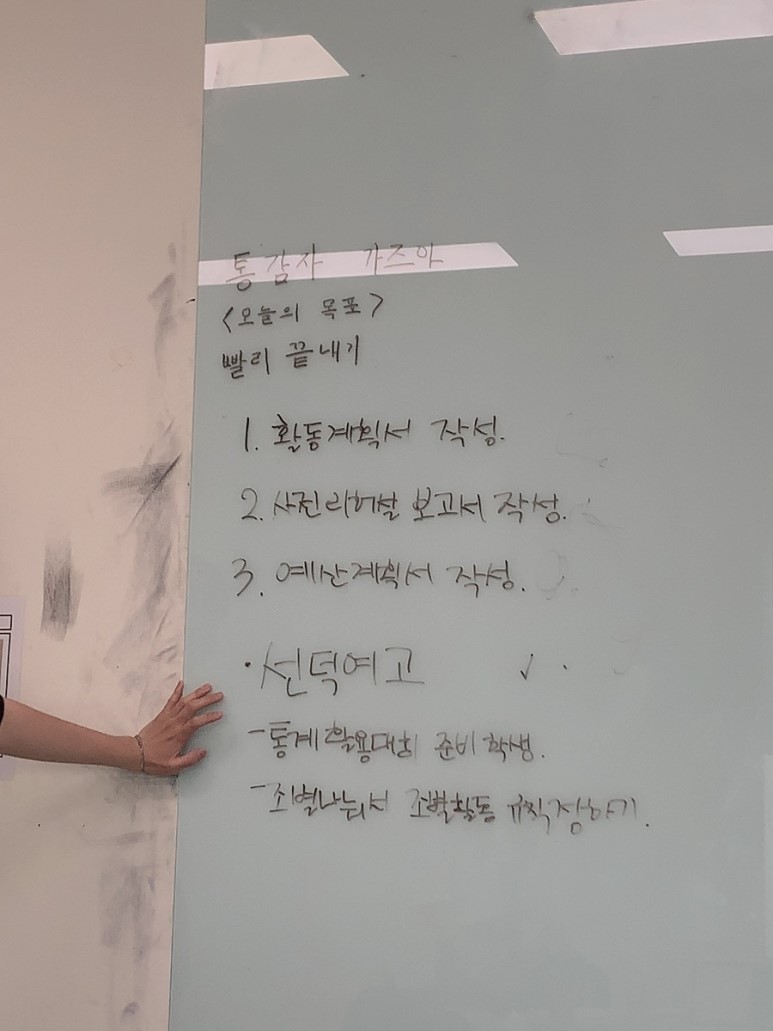 통감자 가즈아
<오늘의 목표>
빨리 끝내기
1. 활동계획서 작성.
2. 사전리허설 보고서 작성.
3. 예산계획서 작성.
·선덕여고
-통계활용대회 준비 학생.
-조별나눠서 조별활동 규칙정하기.